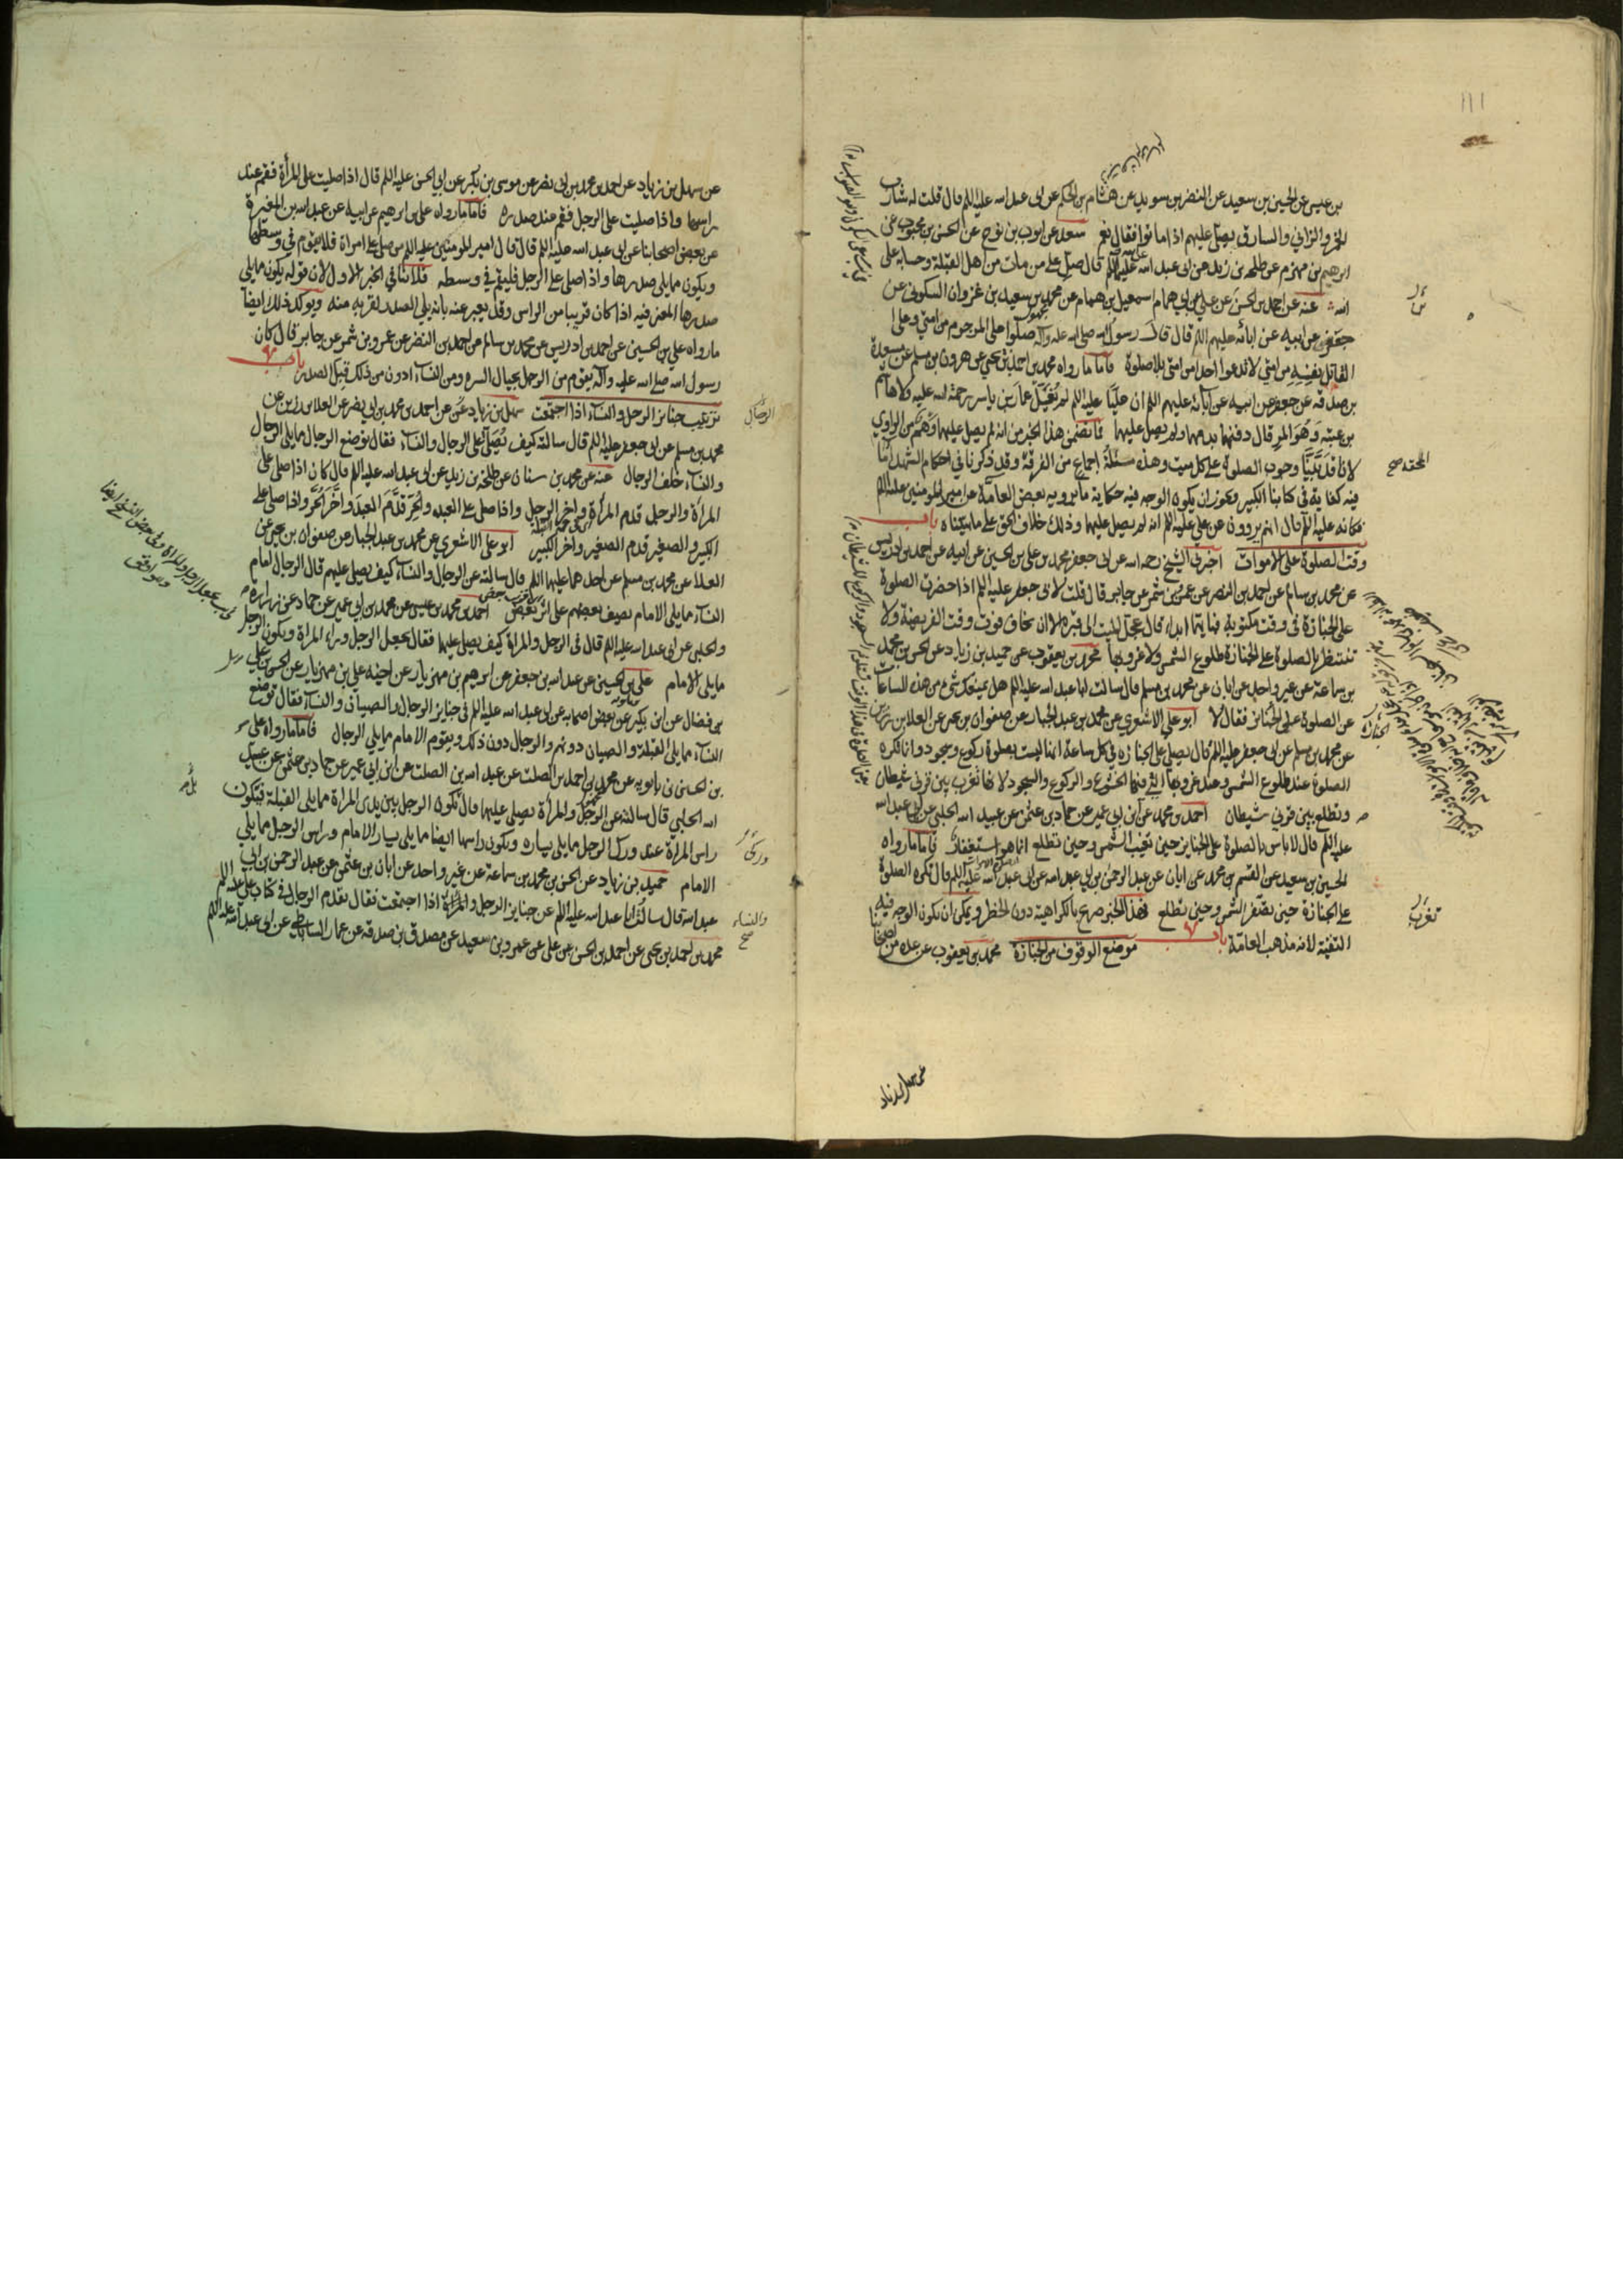 ١١١
بن عيسى عن الحسين بن سعيد عن النضر بن سويد عن هشام بن الحكم عن ابى عبد الله عليه السلم قال قلت له شارب
الخمر والزاني والسارق يصلى عليهم اذا ماتوا فقال نعم سعد عن ايوب بن نوح عن الحسن بن محبوب عن
ابرهيم بن مهزم عن طلحة بن زيد عن ابى عبد الله عليه السلم قال صل على من مات من اهل القبلة وحسابه على
الله عنه عن احمد بن الحسن عن علي عن ابي همام اسمعيل بن همام عن محمد بن سعيد بن غزوان السكوني عن
جعفر عن ابيه عن ابائه عليهم السلم قال قال رسول الله صلى الله عليه واله صلوا على المرجوم من امتي وعلى
القاتل نفسه من امتي لا تدعوا احدا من امتي بلا صلوة فاما ما رواه محمد بن احمد بن يحيى عن هرون بن مسلم عن مسعدة
بن صدقه عن جعفر عن ابيه عن ابائه عليهم السلم ان عليا عليه السلم لم يغسل عمار بن ياسر رحمة الله عليه ولا هاشم
بن عتبة وهو المرقال دفنهما بدمهما ولم يصل عليهما فما تضمن هذا الخبر من انه لم يصل عليهما وهم من الراوي
لانا قد بينا وجوب الصلوة على كل ميت وهذه مسئلة اجماع من الفرقة وقد ذكرنا في احكام الشهداء ما
فيه كفاية في كتابنا الكبير ويجوز ان يكون الوجه فيه حكاية ما يرويه بعض العامة عن امير المومنين عليه السلم
فكانه عليه السلم قال انهم يروون عن علي عليه السلم انه لم يصل عليهما وذلك خلاف الحق على ما بيناه باب
وقت الصلوة على الاموات اخبرني الشيخ رحمه الله عن ابى جعفر محمد بن علي بن الحسين عن ابيه عن احمد بن ادريس
عن محمد بن سالم عن احمد بن النضر عن عمرو بن شمر عن جابر قال قلت لابى جعفر عليه السلم اذا حضرت الصلوة
على الجنازة في وقت مكتوبة فبايتهما ابدا قال عجل الميت الى قبره الا ان تخاف فوت وقت الفريضة ولا
تنتظر بالصلوة على الجنازة طلوع الشمس ولا غروبها محمد بن يعقوب عن حميد بن زياد عن الحسن بن محمد
بن سماعة عن غير واحد عن ابان عن محمد بن مسلم قال سالت ابا عبد الله عليه السلم هل يمنعك شيء من هذه الساعات
عن الصلوة على الجنائز فقال لا ابو علي الاشعري عن محمد بن عبد الجبار عن صفوان بن يحيى عن العلا بن رزين
عن محمد بن مسلم عن ابى جعفر عليه السلم قال يصلى على الجنازة في كل ساعة انها ليست بصلوة ركوع وسجود وانما تكره
الصلوة عند طلوع الشمس وعند غروبها التي فيها الخشوع والركوع والسجود لانها تغرب بين قرني شيطان
وتطلع بين قرني شيطان احمد بن محمد عن ابن ابي عمير عن حماد بن عثمن عن عبيد الله الحلبي عن ابى عبد الله
عليه السلم قال لا باس بالصلوة على الجنايز حين تغيب الشمس وحين تطلع انما هو استغفار فاما ما رواه
الحسين بن سعيد عن القسم بن محمد عن ابان عن عبد الرحمن بن ابي عبد الله عن ابى عبد الله عليه السلم قال تكره الصلوة
على الجنازة حين تصفر الشمس وحين تطلع فهذا الخبر صريح بالكراهية دون الحظر ويمكن ان يكون الوجه فيه
التقية لانه مذهب العامة باب موضع الوقوف من الجنازة محمد بن يعقوب عن عدة من اصحابنا
عن سهل بن زياد
عن سهل بن زياد عن احمد بن محمد بن ابى نصر عن موسى بن بكر عن ابي الحسن عليه السلم قال اذا صليت على المرأة فقم عند
راسها واذا صليت على الرجل فقم عند صدره فاما ما رواه علي بن ابرهيم عن ابيه عن عبد الله بن المغيرة
عن بعض اصحابنا عن ابى عبد الله عليه السلم قال قال امير المومنين عليه السلم من صلى على امراة فلا يقوم في وسطها
ويكون مما يلي صدرها واذا صلى على الرجل فليقم في وسطه فلا ينافي الخبر الاول لان قوله يكون مما يلي
صدرها المعنى فيه اذا كان قريبا من الراس وقد يعبر عنه بانه يلي الصدر لقربه منه ويوكد ذلك ايضا
ما رواه علي بن الحسين عن احمد بن ادريس عن محمد بن سالم عن احمد بن النضر عن عمرو بن شمر عن جابر قال كان
رسول الله صلى الله عليه واله يقوم من الرجل بحيال السره ومن النساء ادون من ذلك قبل الصدر باب
ترتيب جنايز الرجل والنساء اذا اجتمعت سهل بن زياد عن احمد بن محمد بن ابي نصر عن العلا بن رزين عن
محمد بن مسلم عن ابى جعفر عليه السلم قال سالته كيف يصلى على الرجال والنساء فقال توضع الرجال مما يلي الرجال
والنساء خلف الرجال عنه عن محمد بن سنان عن طلحة بن زيد عن ابى عبد الله عليه السلم قال كان اذا صلى على
المرأة والرجل قدم المرأة واخر الرجل واذا صلى على العبد والحر قدم العبد واخر الحر واذا صلى على
الكبير والصغير قدم الصغير واخر الكبير ابو علي الاشعري عن محمد بن عبد الجبار عن صفوان بن يحيى عن
العلا عن محمد بن مسلم عن احدهما عليهما السلم قال سالته عن الرجال والنساء كيف يصلى عليهم قال الرجال امام
النساء مما يلي الامام يصف بعضهم على اثر بعض احمد بن محمد بن عيسى عن محمد بن ابي عمير عن حماد عن زرارة
والحلبي عن ابى عبد الله عليه السلم قال في الرجل والمراة كيف يصلى عليهما فقال يجعل الرجل وراء المراة ويكون الرجل
مما يلي الامام علي بن الحسين عن عبد الله بن جعفر عن ابرهيم بن مهزيار عن اخيه علي بن مهزيار عن الحسن بن علي
بن فضال عن ابن بكير عن بعض اصحابه عن ابى عبد الله عليه السلم في جنايز الرجال والصبيان والنساء فقال توضع
النساء مما يلي القبلة والصبيان دونهم والرجال دون ذلك ويقوم الامام مما يلي الرجال فاما ما رواه علي
بن الحسين بن بابويه عن محمد بن احمد بن الصلت عن عبد الله بن الصلت عن ابن ابي عمير عن حماد بن عثمن عن عبيد
الله الحلبي قال سالته عن الرجل والمرأة يصلى عليهما قال يكون الرجل بين يدي المراة مما يلي القبلة فيكون
راس المراة عند ورك الرجل مما يلي يساره ويكون راسها ايضا مما يلي يسار الامام وراس الرجل مما يلي
الامام حميد بن زياد عن الحسن بن محمد بن سماعة عن غير واحد عن ابان بن عثمن عن عبد الرحمن بن ابي
عبد الله قال سالت ابا عبد الله عليه السلم عن جنايز الرجل والمرأة اذا اجتمعت فقال يقدم الرجال في كتاب علي عليه السلم
محمد بن احمد بن يحيى عن احمد بن الحسن عن علي عن عمرو بن سعيد عن مصدق بن صدقه عن عمار الساباطي عن ابى عبد الله عليه السلم
الرجال
والنساء صح